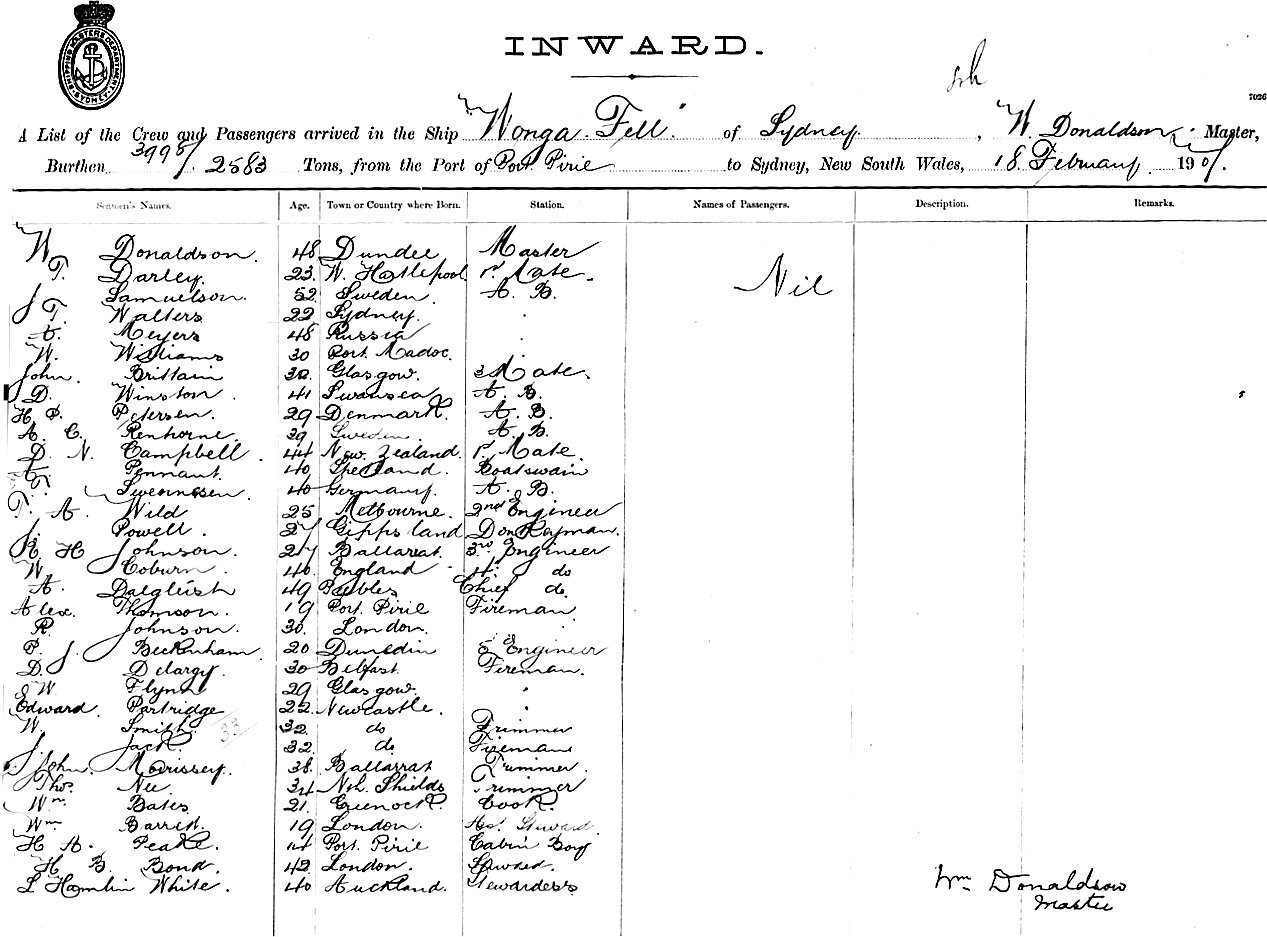 SHIPPING MASTERS DEPARTMENT SYDNEY
INWARD.
7026
A List of the Crew and Passengers arrived in the Ship "Wonga Fell" of Sydney, W. Donaldson Master,
Burthen 2583 Tons, from the Port of Port Pirie to Sydney, New South Wales, 18 February 190
Seamen's Names. Age. Town or Country where Born. Station. Names of Passengers. Description. Remarks.
W Donaldson. 48 Dundee Master
T. Darley. 23. W. Hartlepool 1st Mate. Nil
J Samuelson. 52 Sweden. A. B.
T. Walters 22 Sydney. "
A. Meyers 48 Russia "
W. Williams 30 Port Madoc. "
John. Brittain 32. Glasgow. 3 Mate.
D. Winston. 41 Swansea A. B.
H P. Petersen. 29 Denmark. A. B.
A. C. Renhorne. 39 Sweden. A. B.
D. N. Campbell. 44 New Zealand. 1st Mate.
A. Pennant. 40 Boatswain
T. 40 Germany. A. B.
T. A. Wild 25 Melbourne. 2nd Engineer
J. Powell. 27 Gippsland Donkeyman.
R. H Johnson. 27 Ballarat. 3rd Engineer
W Coburn. 40 England 4th do
A. Dalgleish 49 Peebles Chief do.
Alex Thomson. 19 Port. Pirie Fireman.
R. Johnson. 30. London. "
P. J. Beckenham. 20 Dunedin 5 Engineer
D. Delargy. 30 Belfast. Fireman.
W. Flynn 29 Glasgow. "
Edward. Partridge 22. Newcastle. "
W. Smith. 32. do Trimmer
J. Jack. 32. do Fireman
John. Morissey. 38. Ballarat Trimmer.
Thos. Nee. 34 Nth. Shields Trimmer
Wm. Bates 21. Greenock. Cook.
Wm Barrett. 19 London. Ast. Steward.
H A. Peake. 14 Port. Pirie Cabin Boy
H. B. Bond. 42 London. Steward.
L Hamlin White. 40 Auckland. Stewardess
Wm Donaldson
Master